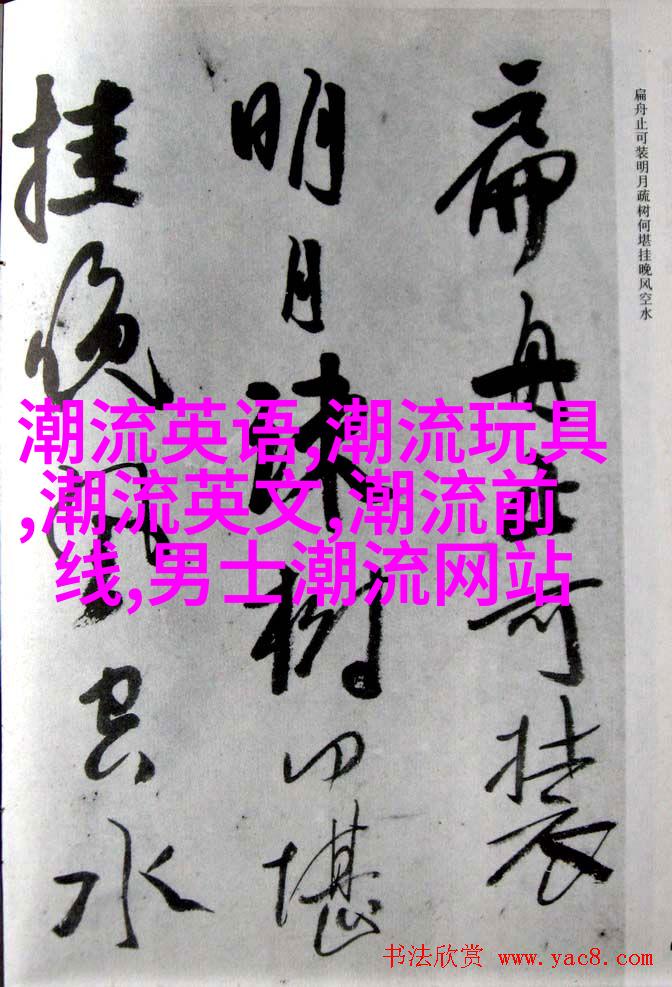 扁舟止可装
明月疏树何堪
挂晚风空水
扁舟止可装明月疏树何堪挂晚风空水
潮流英语,潮流玩具
,潮流英文,潮流前
线,男士潮流网站
书法欣赏 www.yac8.com